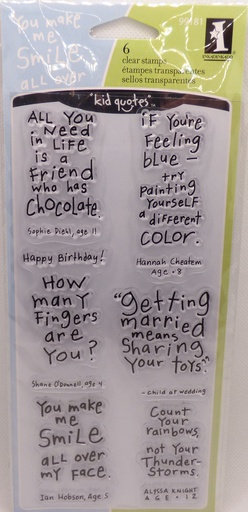 You make
me
Smile
all over
99181
INKADINKADO
6
clear stamps
étampes transparentes
sellos transparentes
"kid quotes"
ALL You
Need
in Life
is a
Friend
who has
Chocolate.
Sophie Diehl, age 11
Happy Birthday!
How
many
Fingers
are
You?
Shane O'Donnell, age 4
You make
me
Smile
all over
my Face.
Ian Hobson, Age 5
iF You're
Feeling
blue –
try
Painting
Yourself
a different
Color.
Hannah Cheatem
Age • 8
"Getting
married
means
Sharing
Your toys."
– child at wedding
Count
Your
rainbows,
not Your
Thunder-
Storms.
ALYSSA KNIGHT
AGE • 12